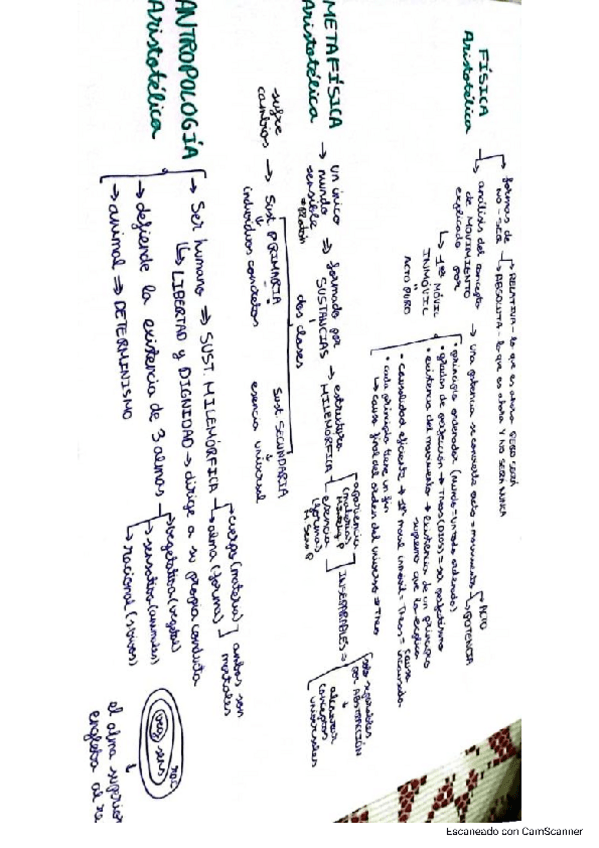 FÍSICA
Aristotélica
formas de NO-SER
RELATIVA - lo que es ahora PERO SERÁ
ABSOLUTA - lo que es ahora Y NO SERÁ NUNCA
análisis del concepto de MOVIMIENTO explicado por
→ una potencia se convierte acto = movimiento
ACTO
POTENCIA
↳ 1er MÓVIL
INMÓVIL
"
ACTO PURO
• principio ordenador (mundo = un todo ordenado)
• grados de perfección → Theos (DIOS) = ser perfectísimo
• existencia del movimiento → existencia de un principio supremo que lo explica
• causalidad eficiente → 1er móvil inmóvil = Theos = causa incausada
• cada principio tiene un fin
↳ causa final del orden del universo = Theos
METAFÍSICA
Aristotélica
→ un único mundo sensible
≠ Platón
⇒ formado por SUSTANCIAS
dos clases
→ estructura HILEMÓRFICA
apariencia (materia)
esencia (forma)
INSEPARABLES ⇒
solo separables por ABSTRACCIÓN
↓
alcanzar conceptos universales
sufre cambios → Sust PRIMARIA
↓
individuos concretos
Sust SECUNDARIA
↓
esencia universal
ANTROPOLOGÍA
Aristotélica
→ Ser humano ⇒ SUST. HILEMÓRFICA
cuerpo (materia)
alma (forma)
ambas son mortales
↳ LIBERTAD y DIGNIDAD → dirige a su propia conducta
→ defiende la existencia de 3 almas
vegetativa (vegetal)
→ sensitiva (animales)
→ racional
→ animal ⇒ DETERMINISMO
veg
sens
rac
↓
el alma superior
engloba al
Escaneado con CamScanner